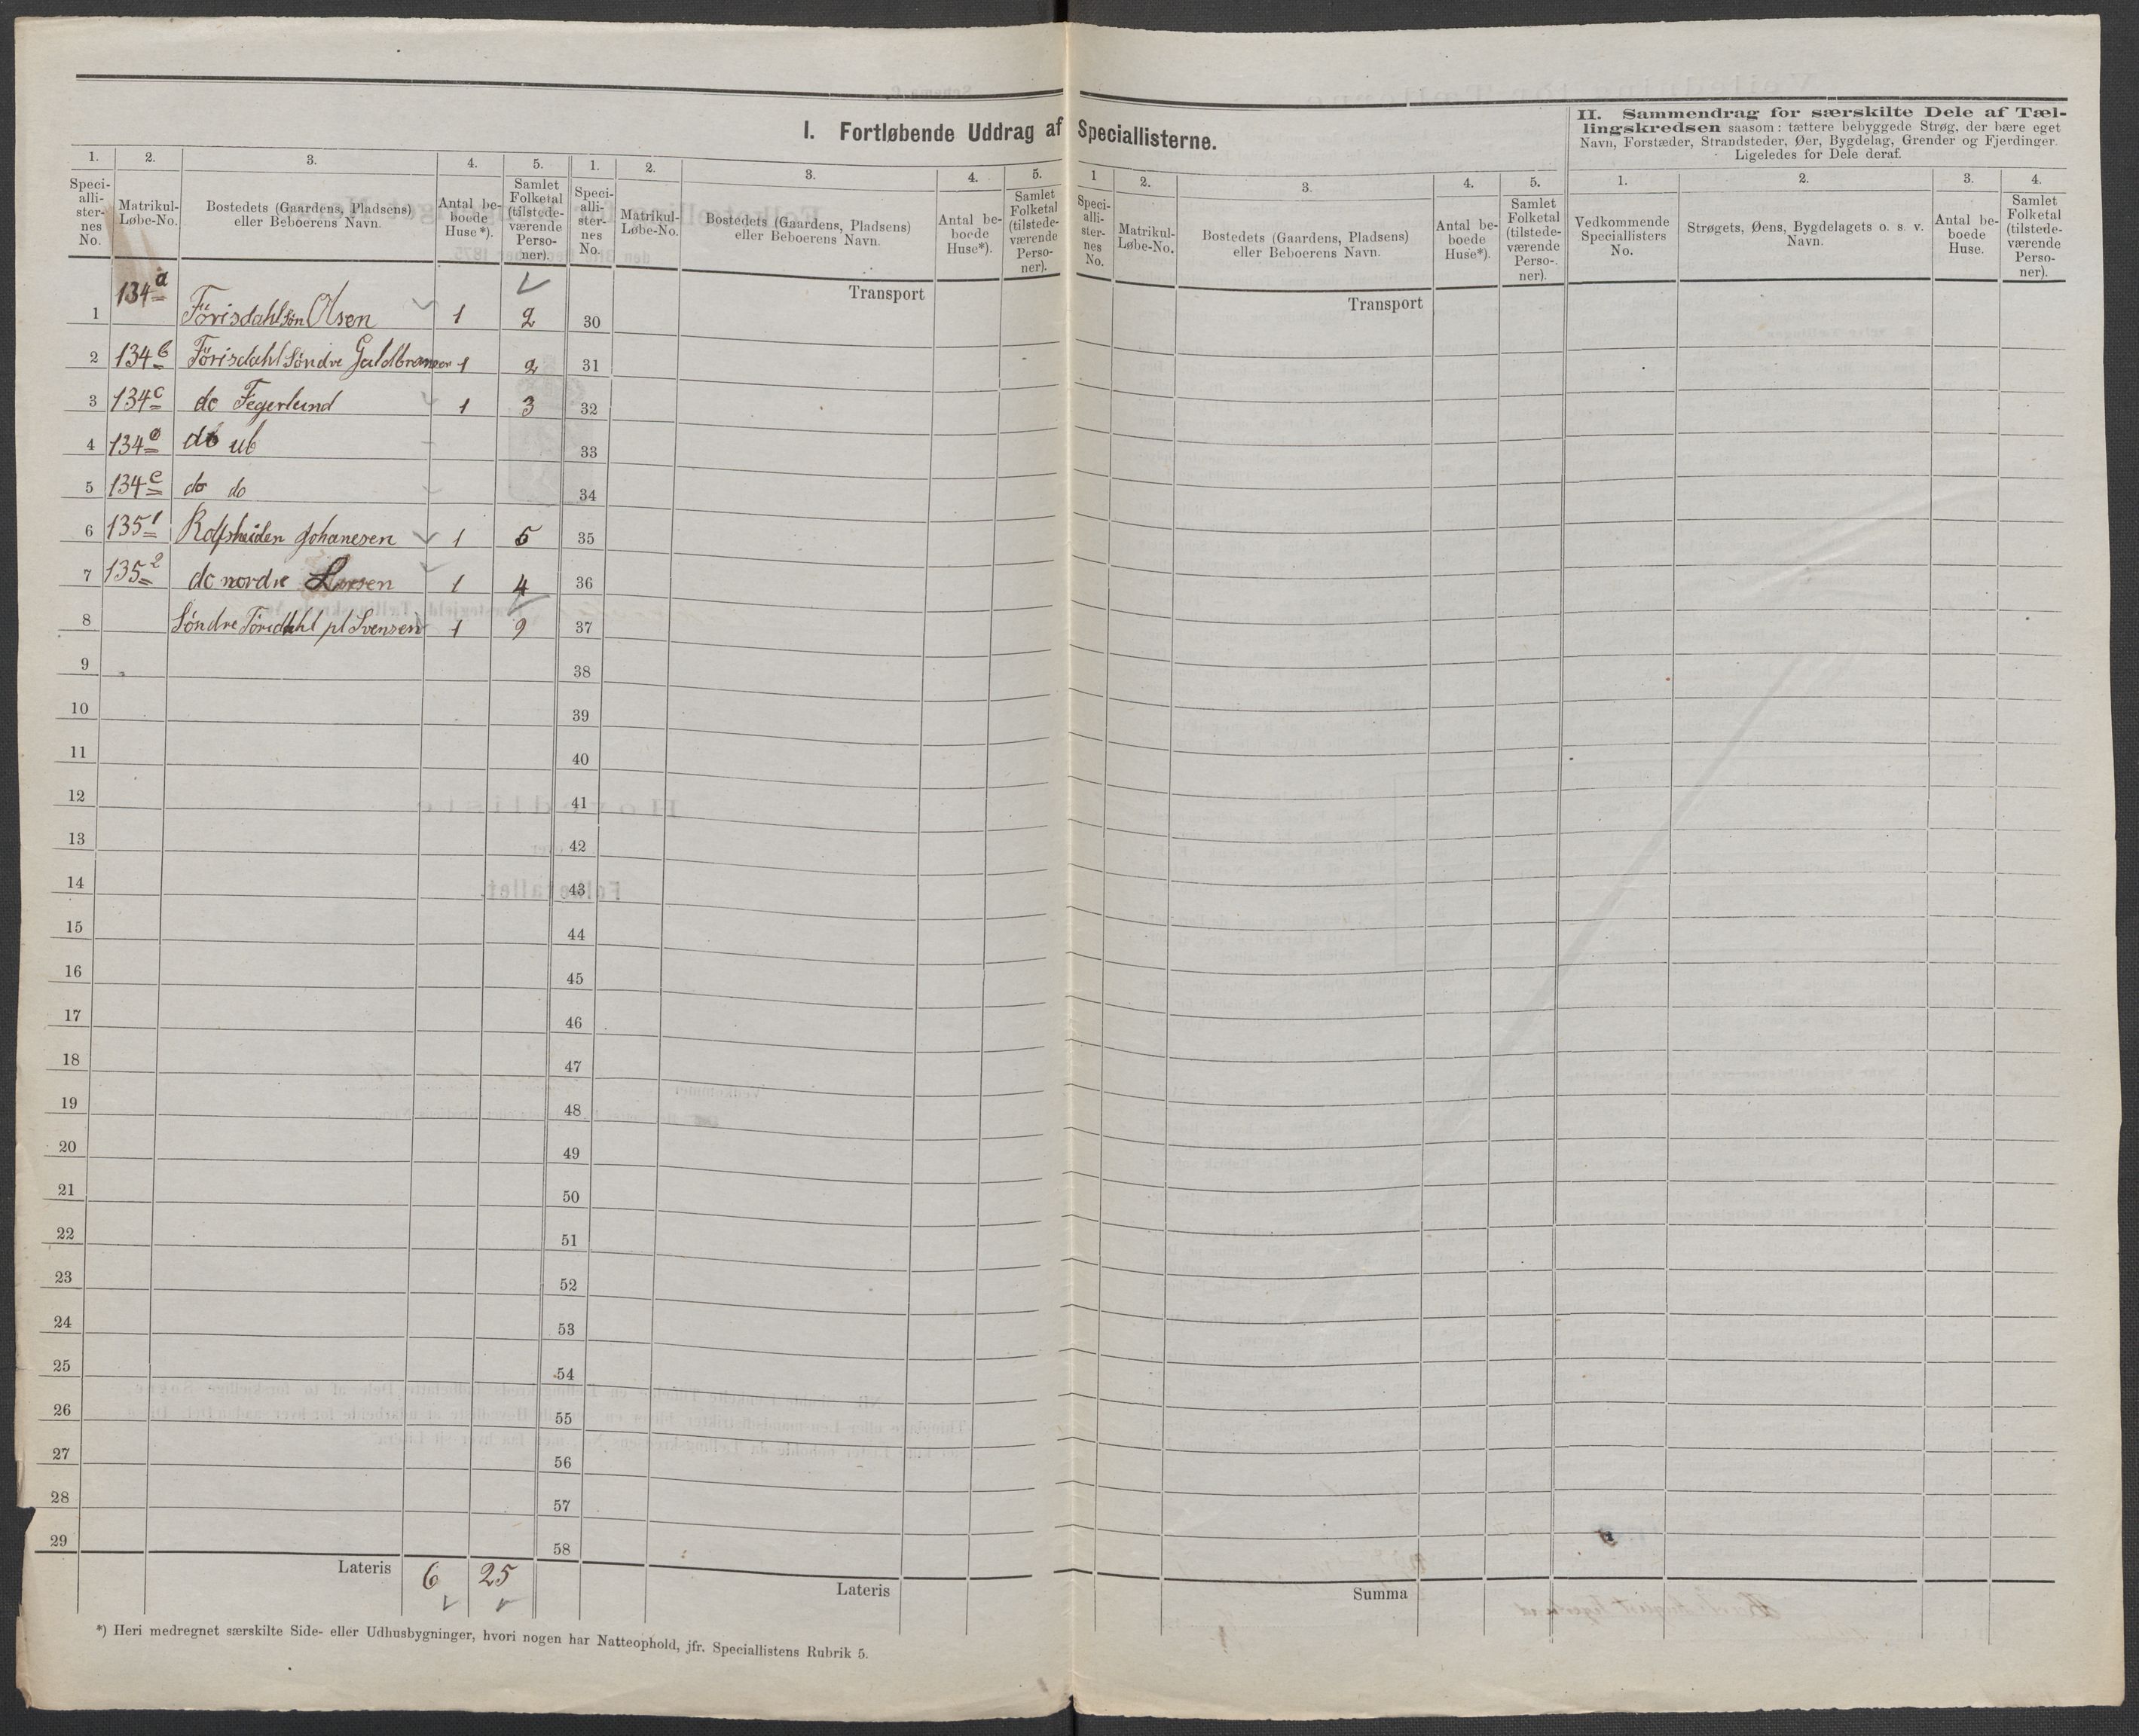 I. Fortløbende Uddrag af Speciallisterne.
1. 2. 3. 4. 5.
Speci-alli-ster-nes No.
Matrikul-Løbe-No.
Bostedets (Gaardens, Pladsens) eller Beboerens Navn.
Antal be-boede Huse*).
Samlet Folketal (tilstede-værende Perso-ner).
1 134a Förisdahl Søn Olsen 1 2
2 134b Förisdahl Søndre Guldbransen 1 2
3 134c do Fegerlund 1 3
4 134d do ub
5 134e do do
6 135 1 Rolfsheiden Johanesen 1 5
7 135 2 do nordre Larsen 1 4
8 Søndre Föridahl pl Svensen 1 9
9
10
11
12
13
14
15
16
17
18
19
20
21
22
23
24
25
26
27
28
29
Lateris 6 25
*) Heri medregnet særskilte Side- eller Udhusbygninger, hvori nogen har Natteophold, jfr. Speciallistens Rubrik 5.
1. 2. 3. 4. 5.
Speci-alli-ster-nes No.
Matrikul-Løbe-No.
Bostedets (Gaardens, Pladsens) eller Beboerens Navn.
Antal be-boede Huse*).
Samlet Folketal (tilstede-værende Perso-ner).
Transport
30
31
32
33
34
35
36
37
38
39
40
41
42
43
44
45
46
47
48
49
50
51
52
53
54
55
56
57
58
Lateris
1 2. 3. 4. 5.
Speci-alli-ster-nes No.
Matrikul-Løbe-No.
Bostedets (Gaardens, Pladsens) eller Beboerens Navn.
Antal be-boede Huse*).
Samlet Folketal (tilstede-værende Perso-ner).
Transport
Summa
II. Sammendrag for særskilte Dele af Tæl-
lingskredsen saasom: tættere bebyggede Strøg, der bære eget
Navn, Forstæder, Strandsteder, Øer, Bygdelag, Grender og Fjerdinger.
Ligeledes for Dele deraf.
1. 2. 3. 4.
Vedkommende Speciallisters No.
Strøgets, Øens, Bygdelagets o. s. v. Navn.
Antal be-boede Huse.
Samlet Folketal (tilstede-værende Perso-ner).